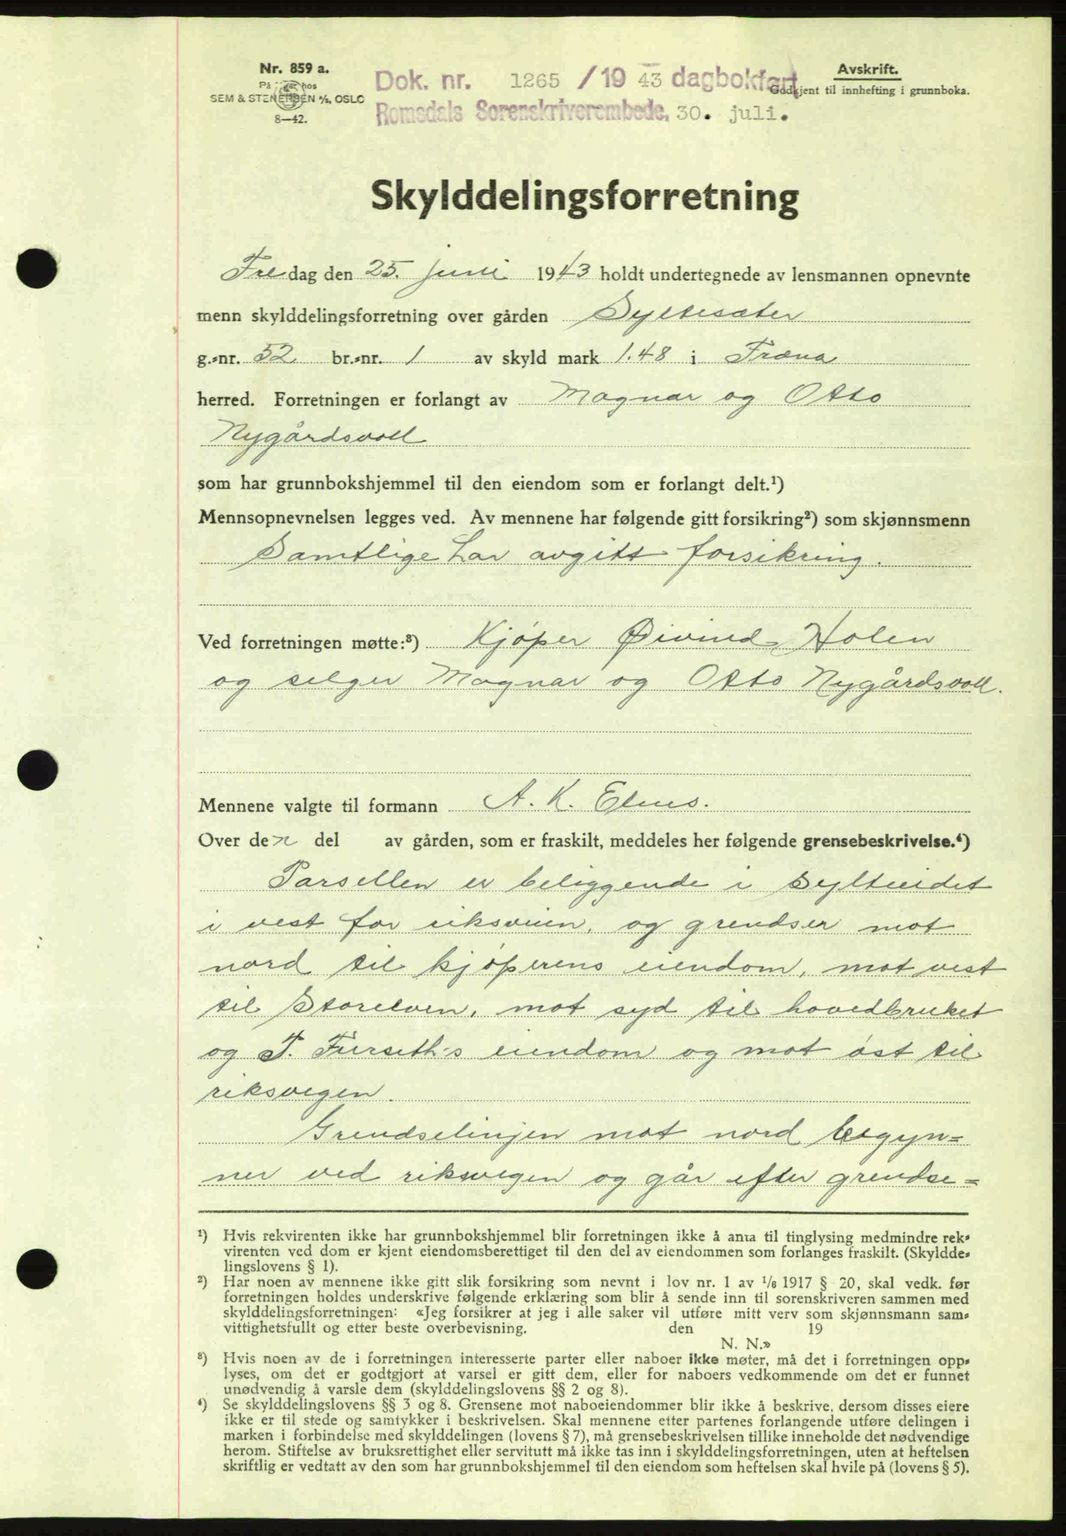 Nr. 859 a.
På lager hos
SEM & STENERSEN A/S, OSLO
8—42.
Dok. nr. 1265 / 19 43 dagbokført
Romsdals Sorenskriverembede, 30. juli.
Avskrift.
Godkjent til innhefting i grunnboka.
Skylddelingsforretning
Fredag den 25. juni 1943 holdt undertegnede av lensmannen opnevnte
menn skylddelingsforretning over gården Syltesæter
g.-nr. 52 br.-nr. 1 av skyld mark 1.48 i Fræna
herred. Forretningen er forlangt av Magnar og Otto
Nygårdsvoll
som har grunnbokshjemmel til den eiendom som er forlangt delt.¹)
Mennsopnevnelsen legges ved. Av mennene har følgende gitt forsikring²) som skjønnsmenn
Samtlige har avgitt forsikring.
Ved forretningen møtte:³) Kjøper Øivind Holen
og selger Magnar og Otto Nygårdsvoll.
Mennene valgte til formann A. K. Elnes.
Over den del av gården, som er fraskilt, meddeles her følgende grensebeskrivelse.⁴)
Parsellen er beliggende i Sylteeidet
i vest for riksveien, og grendser mot
nord til kjøperens eiendom, mot vest
til Storelven, mot syd til hovedbruket
og T. Furseth's eiendom og mot øst til
riksvegen.
Grendselinjen mot nord begyn=
ner ved riksvegen og går efter grendse=
¹) Hvis rekvirenten ikke har grunnbokshjemmel blir forretningen ikke å anta til tinglysing medmindre rek-
virenten ved dom er kjent eiendomsberettiget til den del av eiendommen som forlanges fraskilt. (Skyldde-
lingslovens § 1).
²) Har noen av mennene ikke gitt slik forsikring som nevnt i lov nr. 1 av ¹/₆ 1917 § 20, skal vedk. før
forretningen holdes underskrive følgende erklæring som blir å sende inn til sorenskriveren sammen med
skylddelingsforretningen: «Jeg forsikrer at jeg i alle saker vil utføre mitt verv som skjønnsmann sam-
vittighetsfullt og etter beste overbevisning. den 19
N. N.»
³) Hvis noen av de i forretningen interesserte parter eller naboer ikke møter, må det i forretningen opp-
lyses, om det er godtgjort at varsel er gitt dem, eller for naboers vedkommende om det er funnet
unødvendig å varsle dem (skylddelingslovens §§ 2 og 8).
⁴) Se skylddelingslovens §§ 3 og 8. Grensene mot naboeiendommer blir ikke å beskrive, dersom disses eiere
ikke er til stede og samtykker i beskrivelsen. Skal mennene etter partenes forlangende utføre delingen i
marken i forbindelse med skylddelingen (lovens § 7), må grensebeskrivelsen tillike inneholde det nødvendige
herom. Stiftelse av bruksrettighet eller servitutt må ikke tas inn i skylddelingsforretningen, uten at heftelsen
skriftlig er vedtatt av den som har grunnbokshjemmel til den eiendom som heftelsen skal hvile på (lovens § 5).